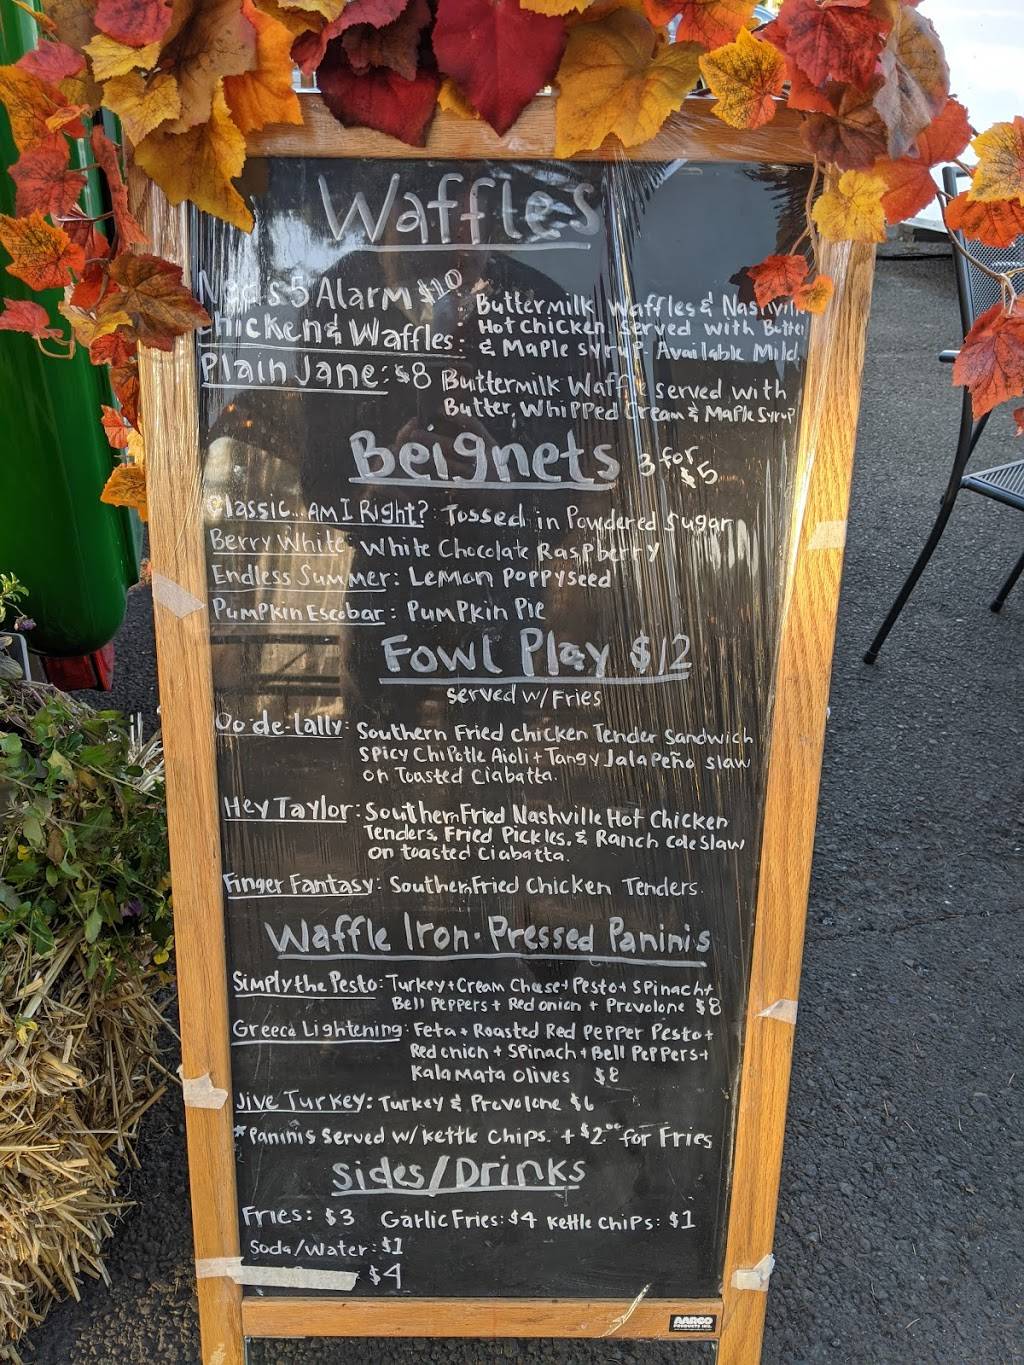 Waffles
Ned's 5 Alarm $10 : Buttermilk Waffles & Nashville
Chicken & Waffles: Hot Chicken, served with Butter
& Maple syrup. Available Mild.
Plain Jane: $8 Buttermilk Waffle served with
Butter, Whipped Cream & Maple Syrup
Beignets 3 for $5
Classic... Am I Right? Tossed in Powdered Sugar
Berry White: White Chocolate Raspberry
Endless Summer: Lemon Poppyseed
Pumpkin Escobar: Pumpkin Pie
Fowl Play $12
served w/ Fries
Oo-de-lally: Southern Fried Chicken Tender Sandwich
Spicy Chipotle Aioli + Tangy Jalapeño slaw
on Toasted Ciabatta.
Hey Taylor: Southern Fried Nashville Hot Chicken
Tenders, Fried Pickles, & Ranch coleslaw
on toasted Ciabatta.
Finger Fantasy: Southern Fried Chicken Tenders.
Waffle Iron-Pressed Paninis
Simply the Pesto: Turkey + Cream Cheese + Pesto + Spinach +
Bell Peppers + Red onion + Provolone $8
Greece Lightening: Feta + Roasted Red Pepper Pesto +
Red onion + Spinach + Bell Peppers +
Kalamata olives $8
Jive Turkey: Turkey & Provolone $6
*Paninis Served w/ Kettle Chips. + $2.00 for Fries
Sides/Drinks
Fries: $3 Garlic Fries: $4 Kettle Chips: $1
Soda/Water: $1
$4
AARCO
PRODUCTS INC.